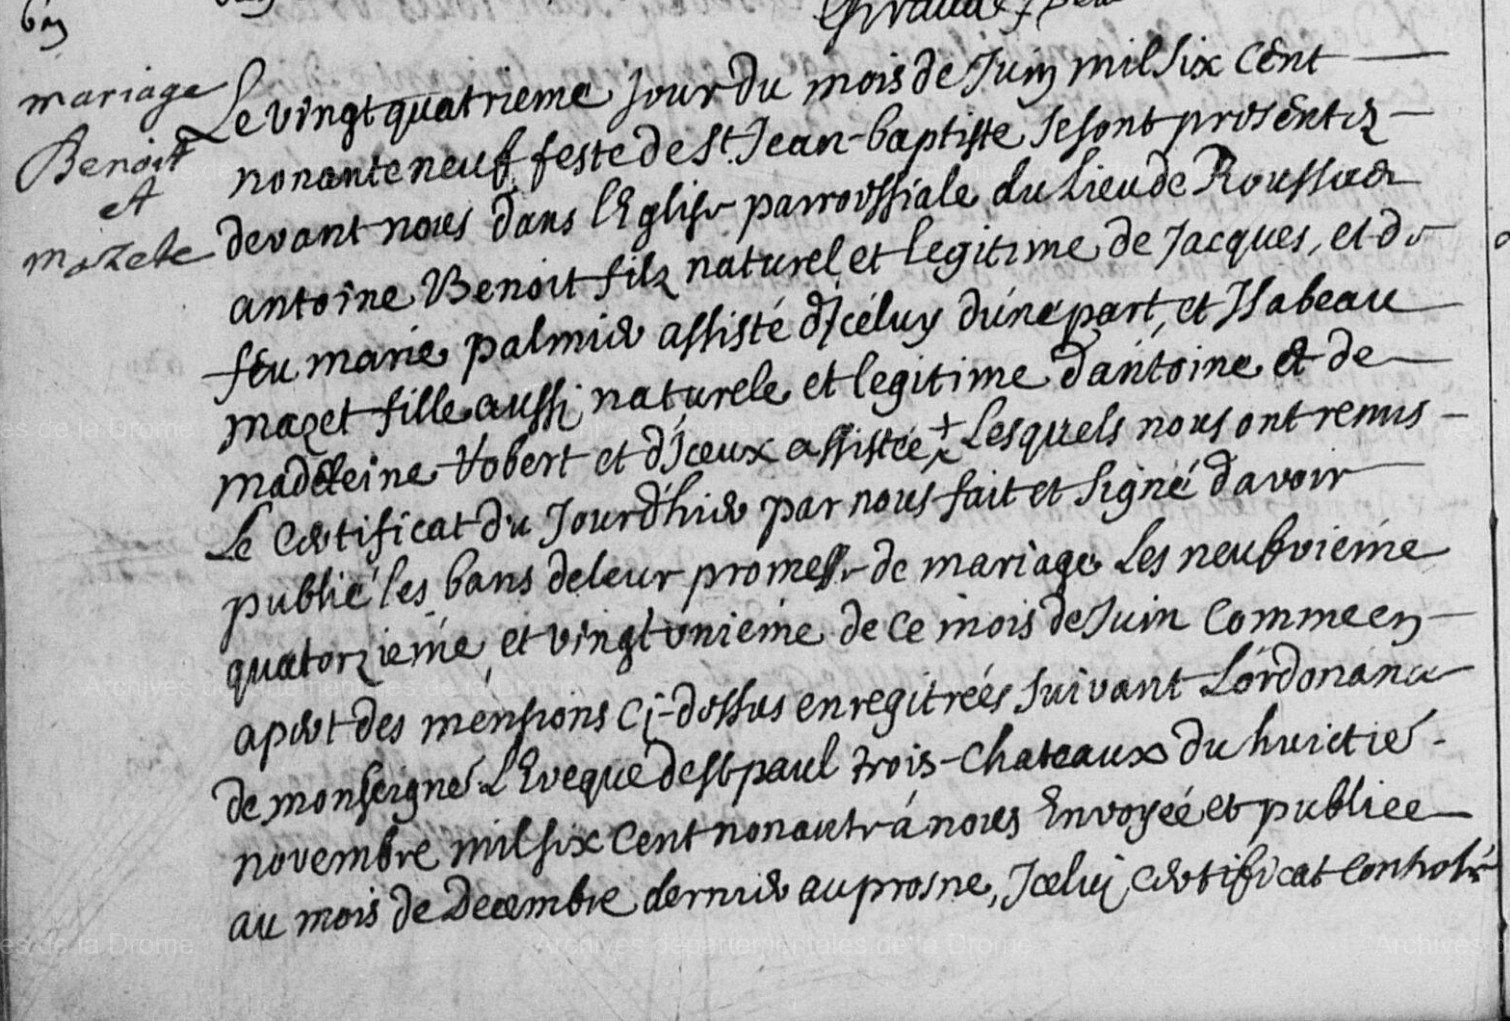 mariage
Benoit
et
mazete
Le vingt quatrieme jour du mois de Juin mil six cent
nonante neuf feste de St Jean-baptiste se sont presentez
devant nous dans l'Eglise parroissiale du lieu de Roussas
antoine Benoit filz naturel et legitime de Jacques, et de
feu marie palmier assisté d'jcéluy d'une part, et Isabeau
mazet fille aussi naturele et legitime d'antoine et de
madeleine Vobert et d'Jceux assistée + Lesquels nous ont remis
Le certificat du Jourd'hui par nous fait et signé d'avoir
publié les bans de leur promesse de mariage Les neufvieme
quatorzieme, et vingt unieme de ce mois de Juin comme en
apert des mensions ci-dessus enregitreés suivant L'ordonance
de monseigne L'Eveque de St paul trois-chateaux du huictie
novembre mil six cent nonante à nous Envoyeé et publiee
au mois de Decembre dernier au prosne, Jcelui certificat controlé